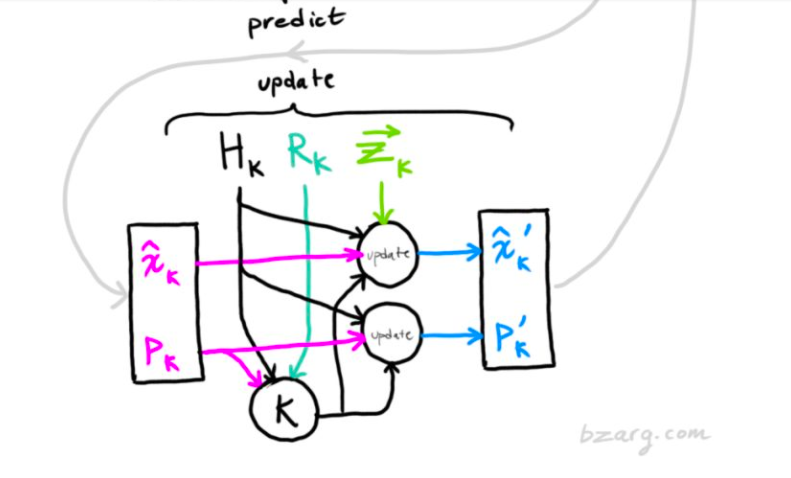 predict
update
H_k R_k z⃗_k
x̂_k update x̂_k′
P_k update P_k′
K
bzarg.com